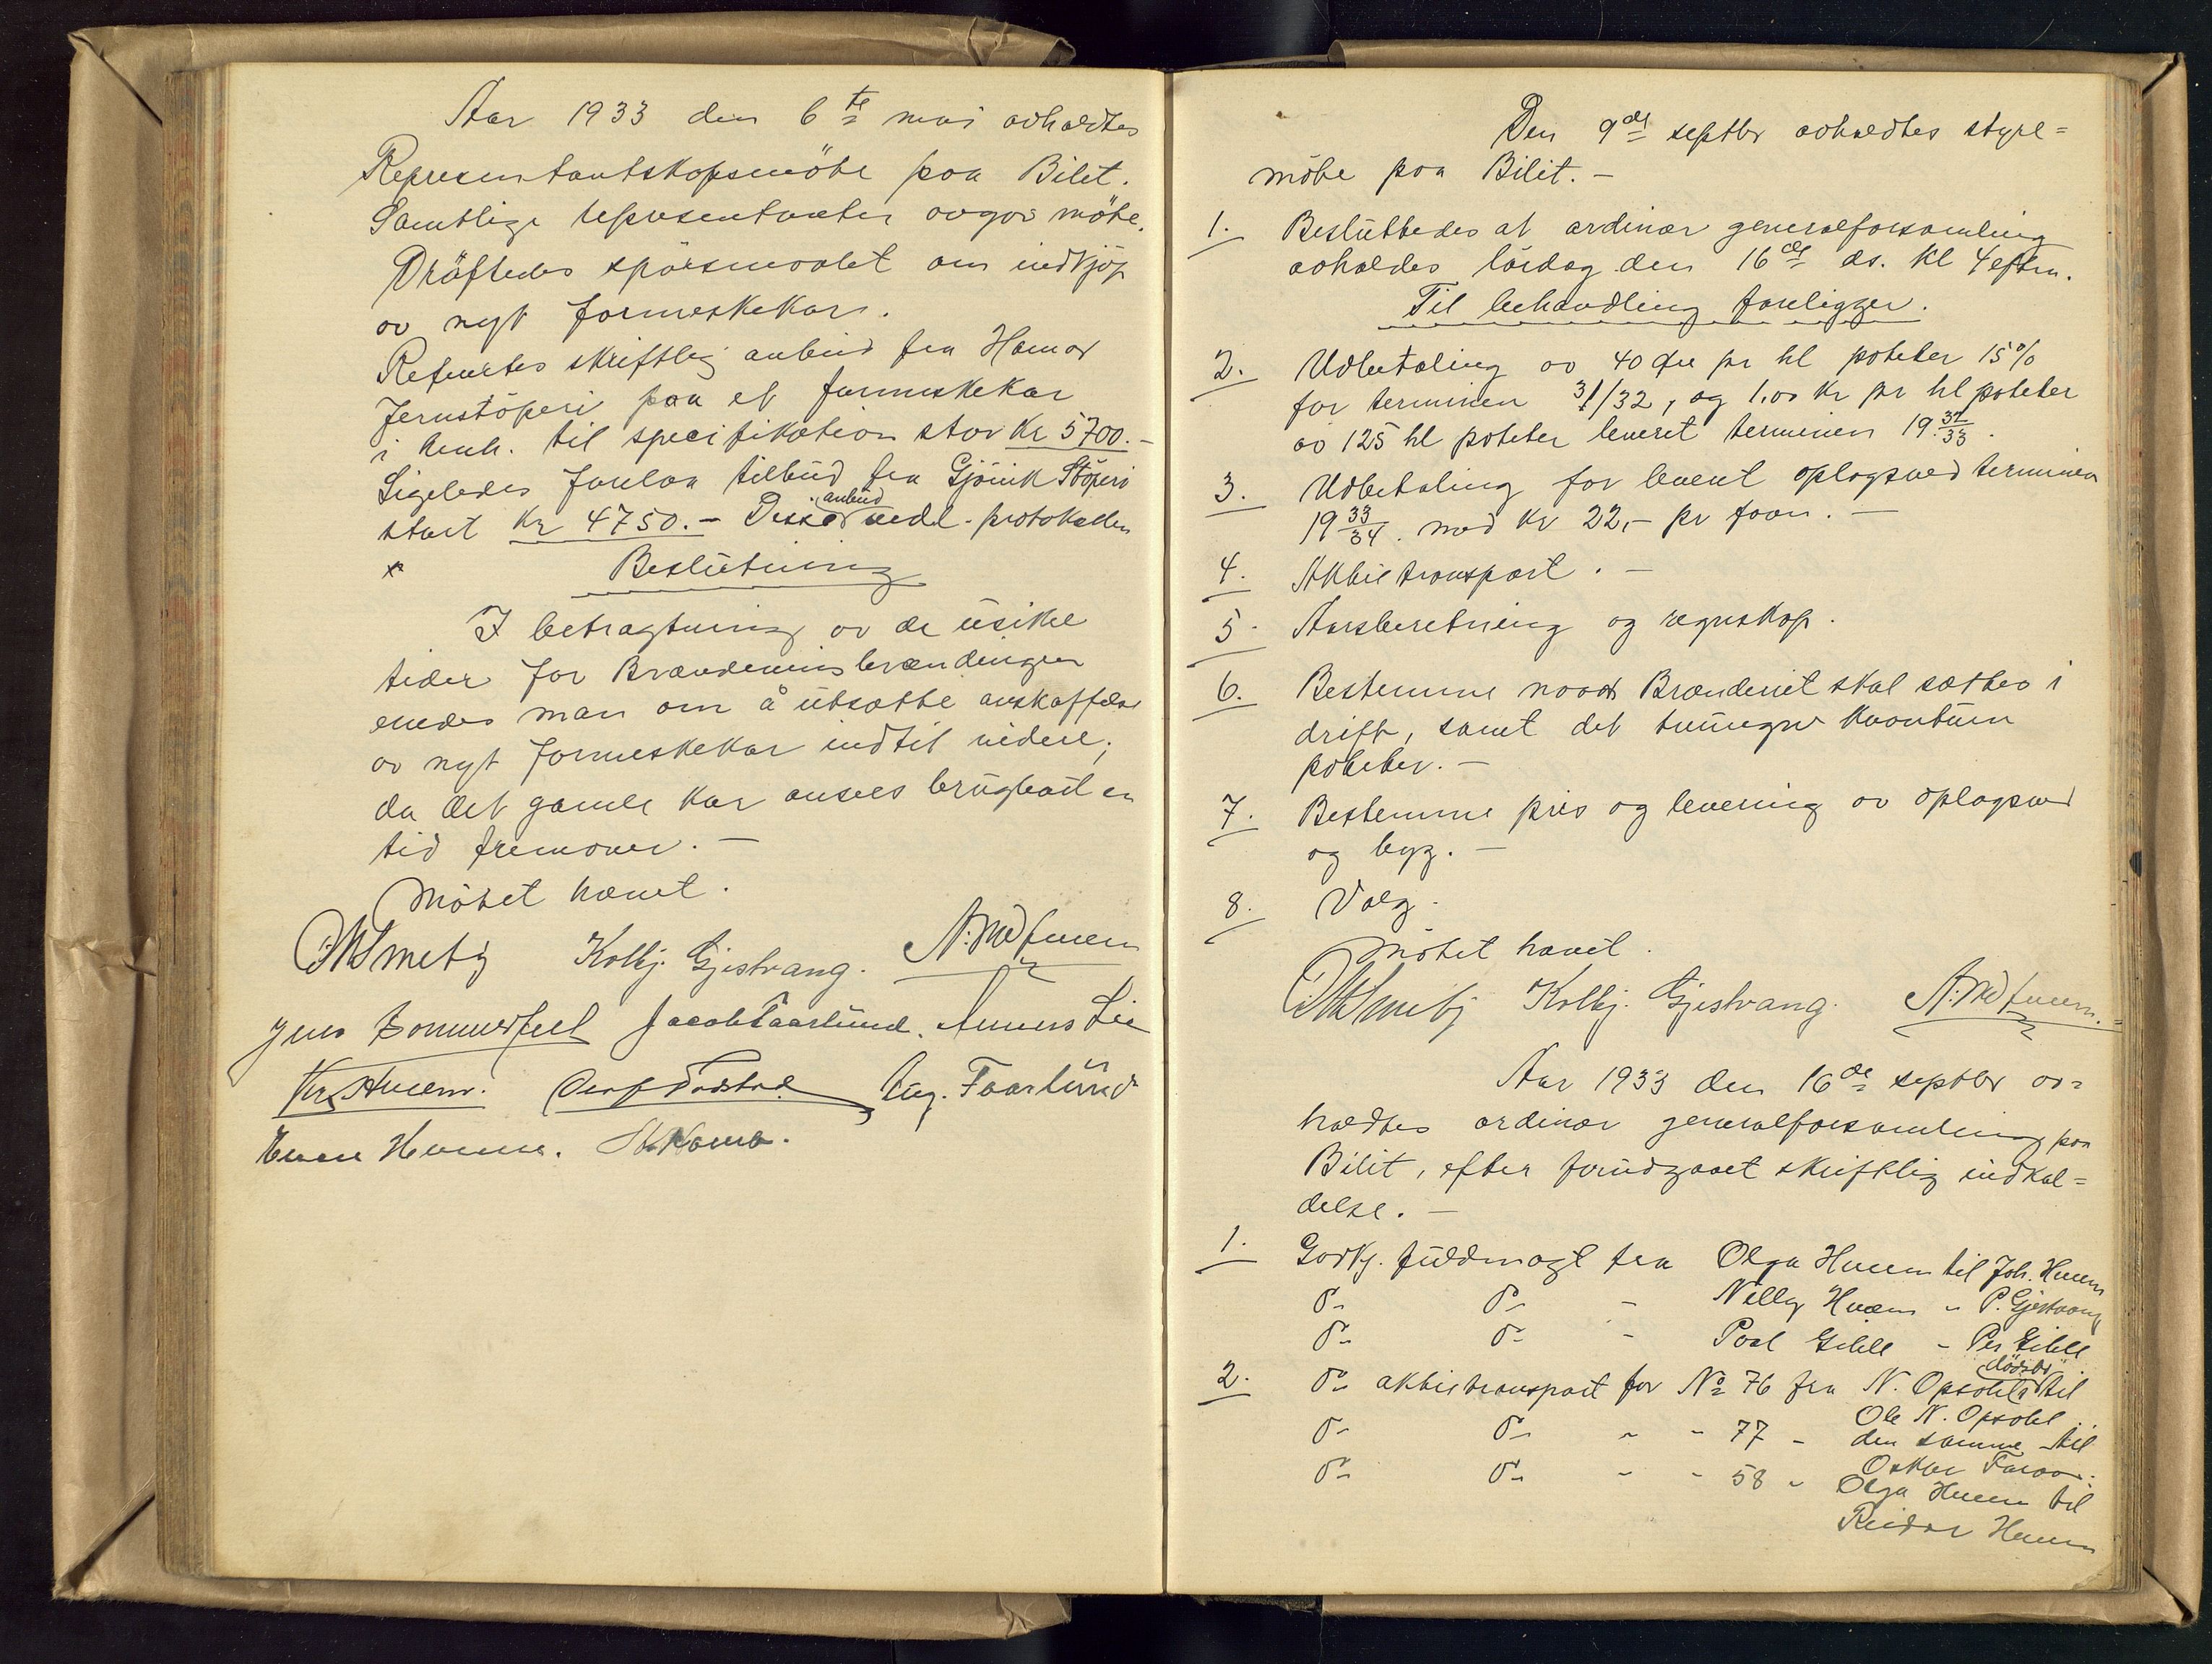 Aar 1933 den 6te mai avholdtes
Representantskapsmöte paa Bilit.
Samtlige representanter avgav möte.
Dröftedes spörsmaalet om indkjöp
av nyt formeskekar.
Refertes skriftlig anbud fra Hamar
Jernstöperi paa et formeskekar
i henh. til specifikation stor Kr 5700.-
Ligeledes forelaa tilbud fra Gjövik Stöperi
stort Kr 4750.- Disse anbud vedl. protokollen
x Beslutning
I betragtning av de usikre
tider for Brændevinsbrændingen
enedes man om å utsætte anskaffelse
av nyt formeskekar indtil videre,
da det gamle kar ansees brugbart en
tid fremover. -
Mötet hævet.
Kolbj. Gjestvang. N. Mdfuem
Jens Sommerfelt Jacob Faarlund. Lie
Kr. Huem. Aug. Faarlund
Den 9de septbr avholdtes styre=
möte paa Bilit. -
1. Besluttedes at ordinær generalforsamling
avholdes lördag den 16de ds. kl 4 eftm.
Til behandling foreligger.
2. Udbetaling av 40 öre pr hl poteter 15%
for terminen 31/32, og 1.00 kr pr hl poteter
av 125 hl poteter leveret terminen 19 32/33.
3. Udbetaling for levert oplagsved terminen
19 33/34. med Kr 22,- pr favn. -
4. Aktietransport. -
5. Aarsberetning og regnskap.
6. Bestemme naar Brænderiet skal sættes i
drift, samt det tvungne kvantum
poteter. -
7. Bestemme pris og levering av oplagsved
og byg. -
8. Valg.
Mötet hævet.
Kolbj. Gjestvang. N. Mdfuem.
Aar 1933 den 16de septbr av=
holdtes ordinær generalforsamling paa
Bilit, efter forudgaaet skriftlig indkal=
delse. -
1. Godkj. fuldmagt fra Olga Huem til Joh. Huem
do do - Nelly Huem " P. Gjestvang
do do - Paal Gihle - Per Gihle
2. do aktietransport for No 76 fra N. Opsahls dödsbo til
Ole N. Opsahl
do do " - 77 - den samme til
Oskar
do do - - 58 " Olga Huem til
Reidar Huem